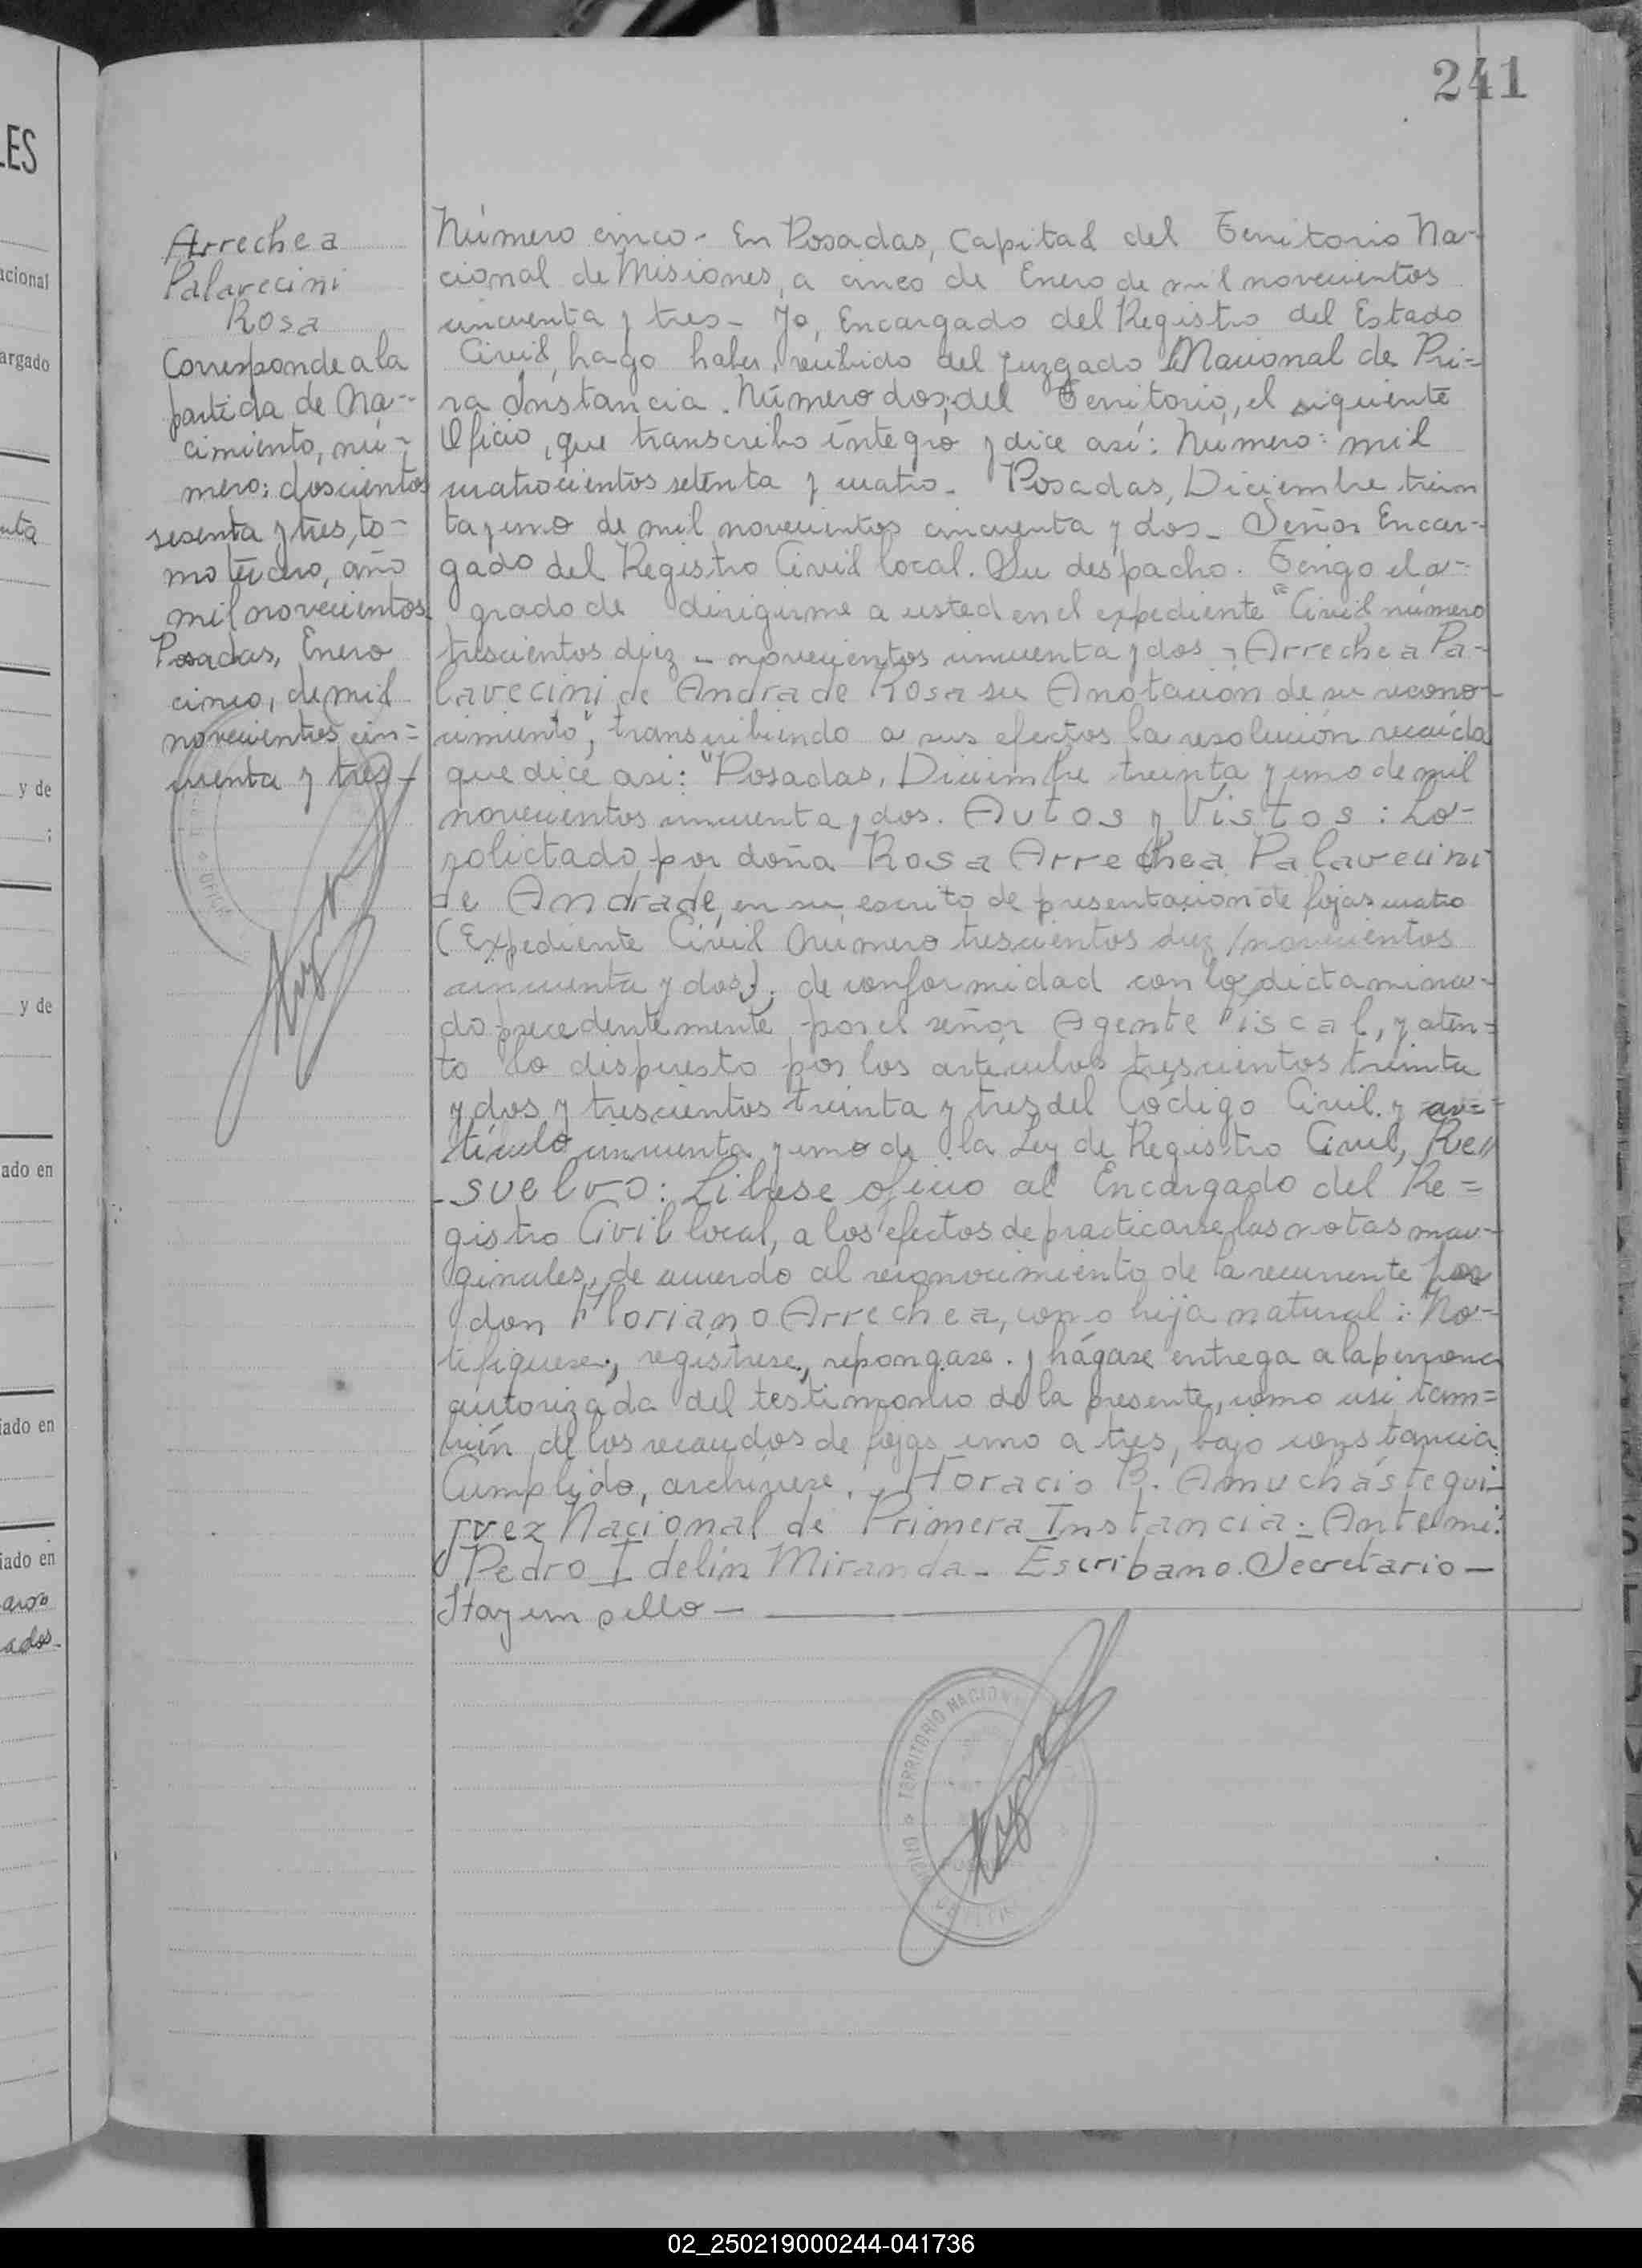 241
LES
acional
argado
nta
y de
;
y de
ado en
iado en
iado en
ados
Arrechea
Palavecini
Rosa
Corresponde a la
partida de Na-
cimiento, nú-
mero: doscientos
sesenta y tres, to-
mo tercero, año
mil novecientos
Posadas, Enero
cinco, de mil
novecientos cin=
cuenta y tres-
Número cinco- En Posadas, Capital del Territorio Na-
cional de Misiones, a cinco de Enero de mil novecientos
cincuenta y tres- Yo, Encargado del Registro del Estado
Civil, hago haber, recibido del juzgado Nacional de Pri=
ra Instancia. Número dos, del Territorio, el siguiente
Oficio, que transcribo íntegro y dice así: Número: mil
cuatrocientos setenta y cuatro- Posadas, Diciembre trein
ta y uno de mil novecientos cincuenta y dos- Señor Encar-
gado del Registro Civil local. Su despacho. Tengo el a-
grado de dirigirme a usted en el expediente "Civil número
trescientos diez - novecientos cincuenta y dos - Arrechea Pa-
lavecini de Andrade Rosa su Anotación de su recono-
cimiento", transcribiendo a sus efectos la resolución recaída
que dice así: "Posadas, Diciembre treinta y uno de mil
novecientos cincuenta y dos. Autos y Vistos: Lo-
solictado por doña Rosa Arrechea Palavecini
de Andrade, en su escrito de presentación de fojas cuatro
(Expediente Civil Número trescientos diez/novecientos
cincuenta y dos); de conformidad con lo dictamina-
do precedentemente por el señor Agente Fiscal, y aten=
to lo dispuesto por los artículos trescientos treinta
y dos y trescientos treinta y tres del Código Civil y ar=
tículo cincuenta y uno de la Ley de Registro Civil, Re//
-suelvo: Líbrese oficio al Encargado del Re=
gistro Civil local, a los efectos de practicarse las notas mar-
ginales, de acuerdo al reconocimiento de la recurrente por
don Floriano Arrechea, como hija natural: No-
tifíquese, regístrese, repongase. y hágase entrega a la persona
autorizada del testimonio de la presente, como así tam=
bién de los recaudos de fojas uno a tres, bajo constancia
Cumplido, archívese. Horacio B. Amuchástegui-
Juez Nacional de Primera Instancia. Ante mi:
Pedro Idelín Miranda- Escribano. Secretario-
Hay un sello-
TERRITORIO NACION
02_250219000244-041736